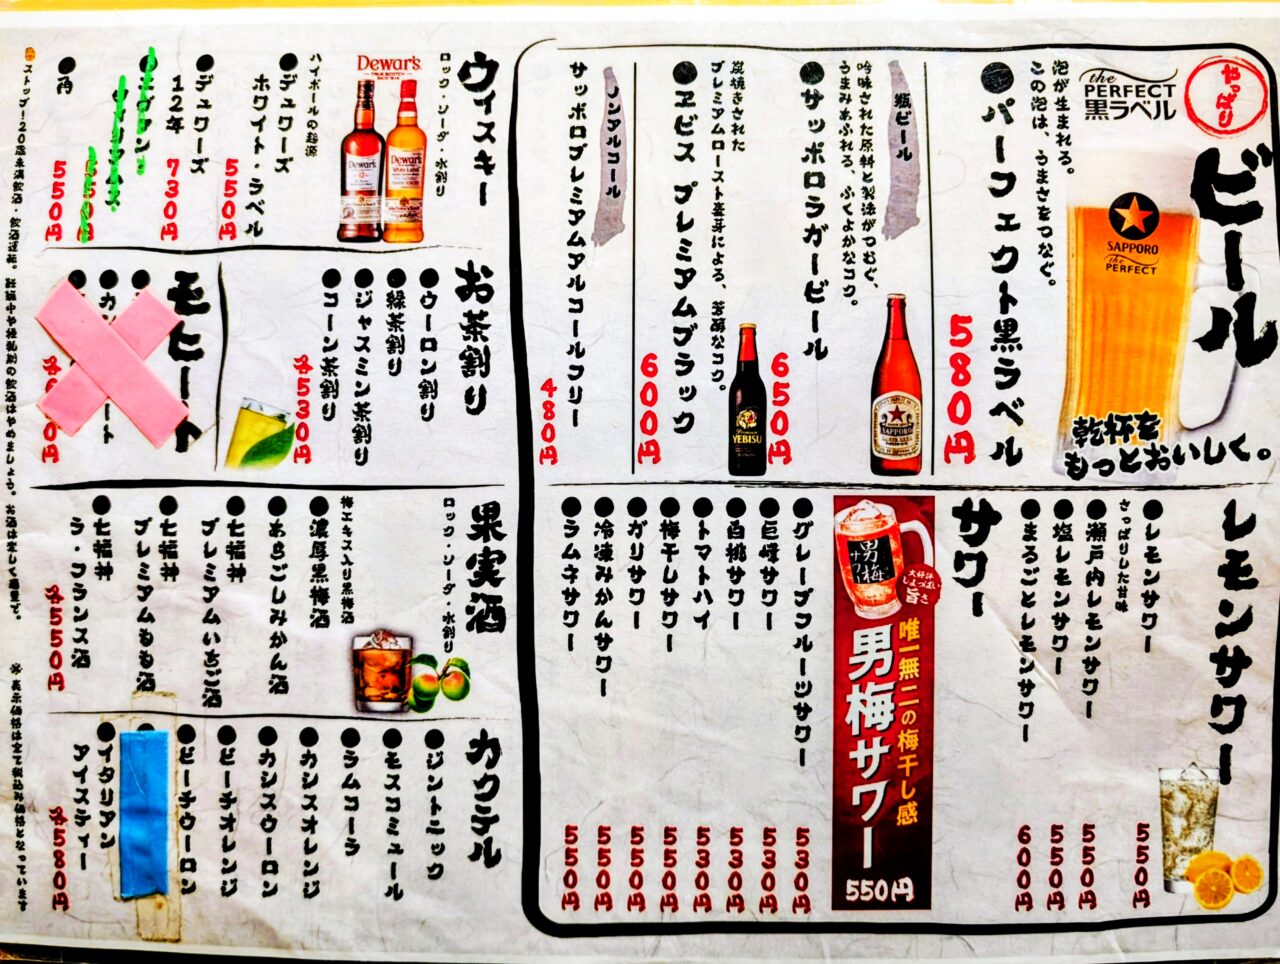 やっぱり
ビール
the
PERFECT
黒ラベル
泡が生まれる。
この泡は、うまさをつなぐ。
●パーフェクト黒ラベル
580円
SAPPORO
the
PERFECT
乾杯を
もっとおいしく。
瓶ビール
吟味された原料と製法がつむぐ、
うまみあふれる、ふくよかなコク。
●サッポロラガービール
650円
SAPPORO
炭焼きされた
プレミアムロースト麦芽による、芳醇なコク。
●ヱビス プレミアムブラック
600円
YEBISU
ノンアルコール
サッポロプレミアムアルコールフリー
480円
レモンサワー
●レモンサワー
550円
さっぱりした甘味
●瀬戸内レモンサワー
550円
●塩レモンサワー
550円
●まるごとレモンサワー
600円
サワー
男梅
サワー
大好評
しょっぱい
旨さ
唯一無二の梅干し感
男梅サワー
550円
●グレープフルーツサワー
530円
●巨峰サワー
530円
●白桃サワー
530円
●トマトハイ
530円
●梅干しサワー
550円
●ガリサワー
550円
●冷凍みかんサワー
550円
●ラムネサワー
550円
ウィスキー
ロック・ソーダ・水割り
Dewar's
TRUE SCOTCH
Dewar's
Dewar's
White Label
ハイボールの起源
●デュワーズ
ホワイト・ラベル
550円
●デュワーズ
12年
730円
●エヴァン・
ウィリアムス
550円
●角
550円
お茶割り
●ウーロン割り
●緑茶割り
●ジャスミン茶割り
●コーン茶割り
各530円
モヒート
果実酒
ロック・ソーダ・水割り
梅エキス入り黒梅酒
●濃厚黒梅酒
●あらごしみかん酒
●七福神
プレミアムいちご酒
●七福神
プレミアムもも酒
●七福神
ラ・フランス酒
各550円
カクテル
●ジントニック
●モスコミュール
●ラムコーラ
●カシスオレンジ
●カシスウーロン
●ピーチオレンジ
●ピーチウーロン
●イタリアン
アイスティー
各580円
ストップ!20歳未満飲酒・飲酒運転。妊娠中や授乳期の飲酒はやめましょう。お酒は楽しく適量で。
※表示価格は全て税込み価格となっています